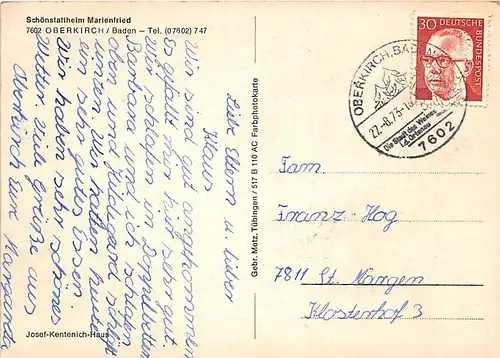 Schönstattheim Marienfried
7602 OBERKIRCH / Baden – Tel. (07802) 747
Liebe Eltern u. lieber
Klaus
Wir sind gut angekommen
es gefällt mir hier sehr gut.
Wir schlafen in Doppelbetten
Barbara und ich schlafen
oben und Hildegard schläft
unten. Wir hatten heute
ein sehr gutes Essen
Wir haben sehr schönes
Wetter. Viele Grüße aus
Oberkirch Eure Margareta
Josef-Kentenich-Haus
Gebr. Metz, Tübingen / 517 B 110 AC Farbphotokarte
30 DEUTSCHE
BUNDESPOST
OBERKIRCH, BADEN
27.-8.73-18
Die Stadt des Weines
i.d. Ortenau
7602
Fam.
Franz Hog
7811 St. Märgen
Klosterhof 3